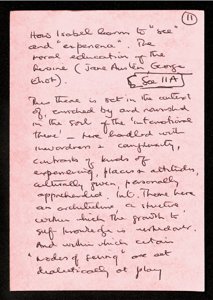 11
How Isabel learns to "see"
and "experience". The
moral education of the
heroine (Jane Austen George
Eliot).
See 11A
Thus there is set in the context
of, enriched by and nourished
in the soil of the 'international
theme' – here handled with
inwardness & complexity,
contrasts of kinds of
experiencing, places & attitudes,
culturally given, personally
apprehended. Int. Theme here
an architecture, a structure
within which the growth to
self knowledge is worked out.
And within which certain
"modes of seeing" are set
dialectically at play